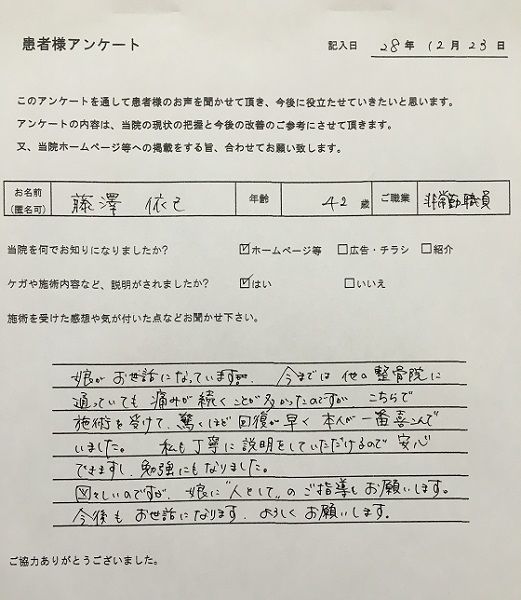 患者様アンケート
記入日 28年 12月 23日
このアンケートを通して患者様のお声を聞かせて頂き、今後に役立たせていきたいと思います。
アンケートの内容は、当院の現状の把握と今後の改善のご参考にさせて頂きます。
又、当院ホームページ等への掲載をする旨、合わせてお願い致します。
お名前 (匿名可) 藤澤 依己 年齢 42歳 ご職業 非常勤職員
当院を何でお知りになりましたか? ☑ホームページ等 □広告・チラシ □紹介
ケガや施術内容など、説明がされましたか? ☑はい □いいえ
施術を受けた感想や気が付いた点などお聞かせ下さい。
娘が お世話になっています。今までは 他の整骨院に
通っていても 痛みが続くことが多かったのですが こちらで
施術を受けて、驚くほど回復が早く 本人が一番喜んで
いました。私も丁寧に説明をしていただけるので 安心
できますし、勉強にもなりました。
図々しいのですが、娘に"人として"のご指導もお願いします。
今後も お世話になります。よろしくお願いします。
ご協力ありがとうございました。